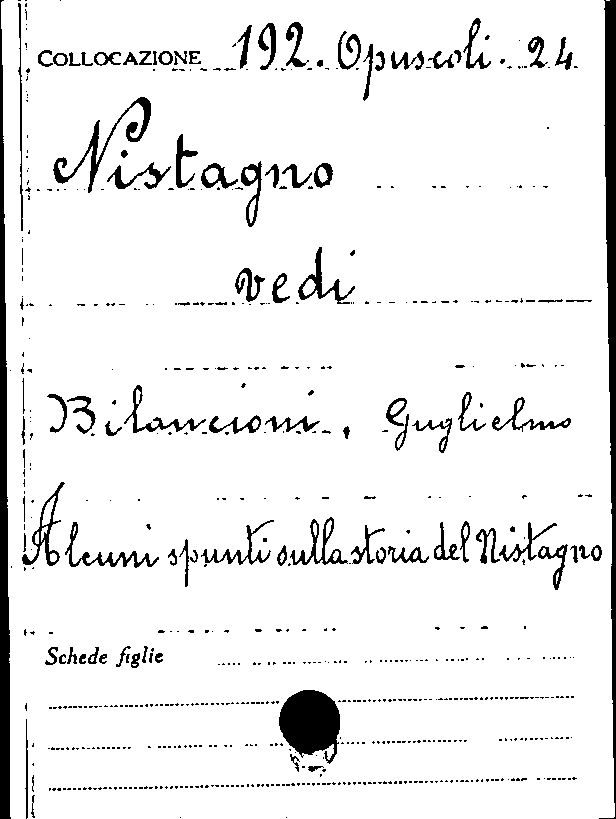 COLLOCAZIONE 192. Opuscoli. 24
Nistagno
vedi
Bilancioni, Guglielmo
Alcuni spunti sulla storia del Nistagno
Schede figlie